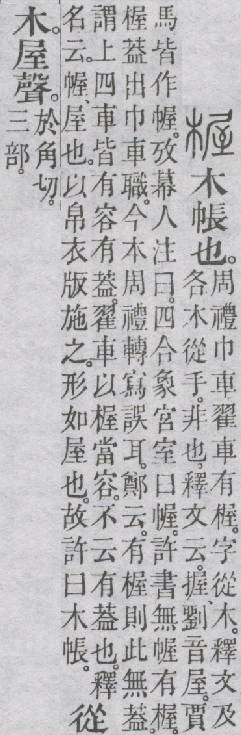 楃木帳也。周禮巾車翟車有楃。字從木。釋文及
各木從手。非也。釋文云。握劉音屋。賈
馬皆作幄。攷幕人注曰。四合象宮室曰幄。許書無幄有楃。
楃葢出巾車職。今本周禮轉寫誤耳。鄭云。有楃則此無葢。
謂上四車皆有容有葢。翟車以楃當容。不云有葢也。釋
名云。幄、屋也。以帛衣版施之。形如屋也。故許曰木帳。從
木。屋聲。於角切。
三部。